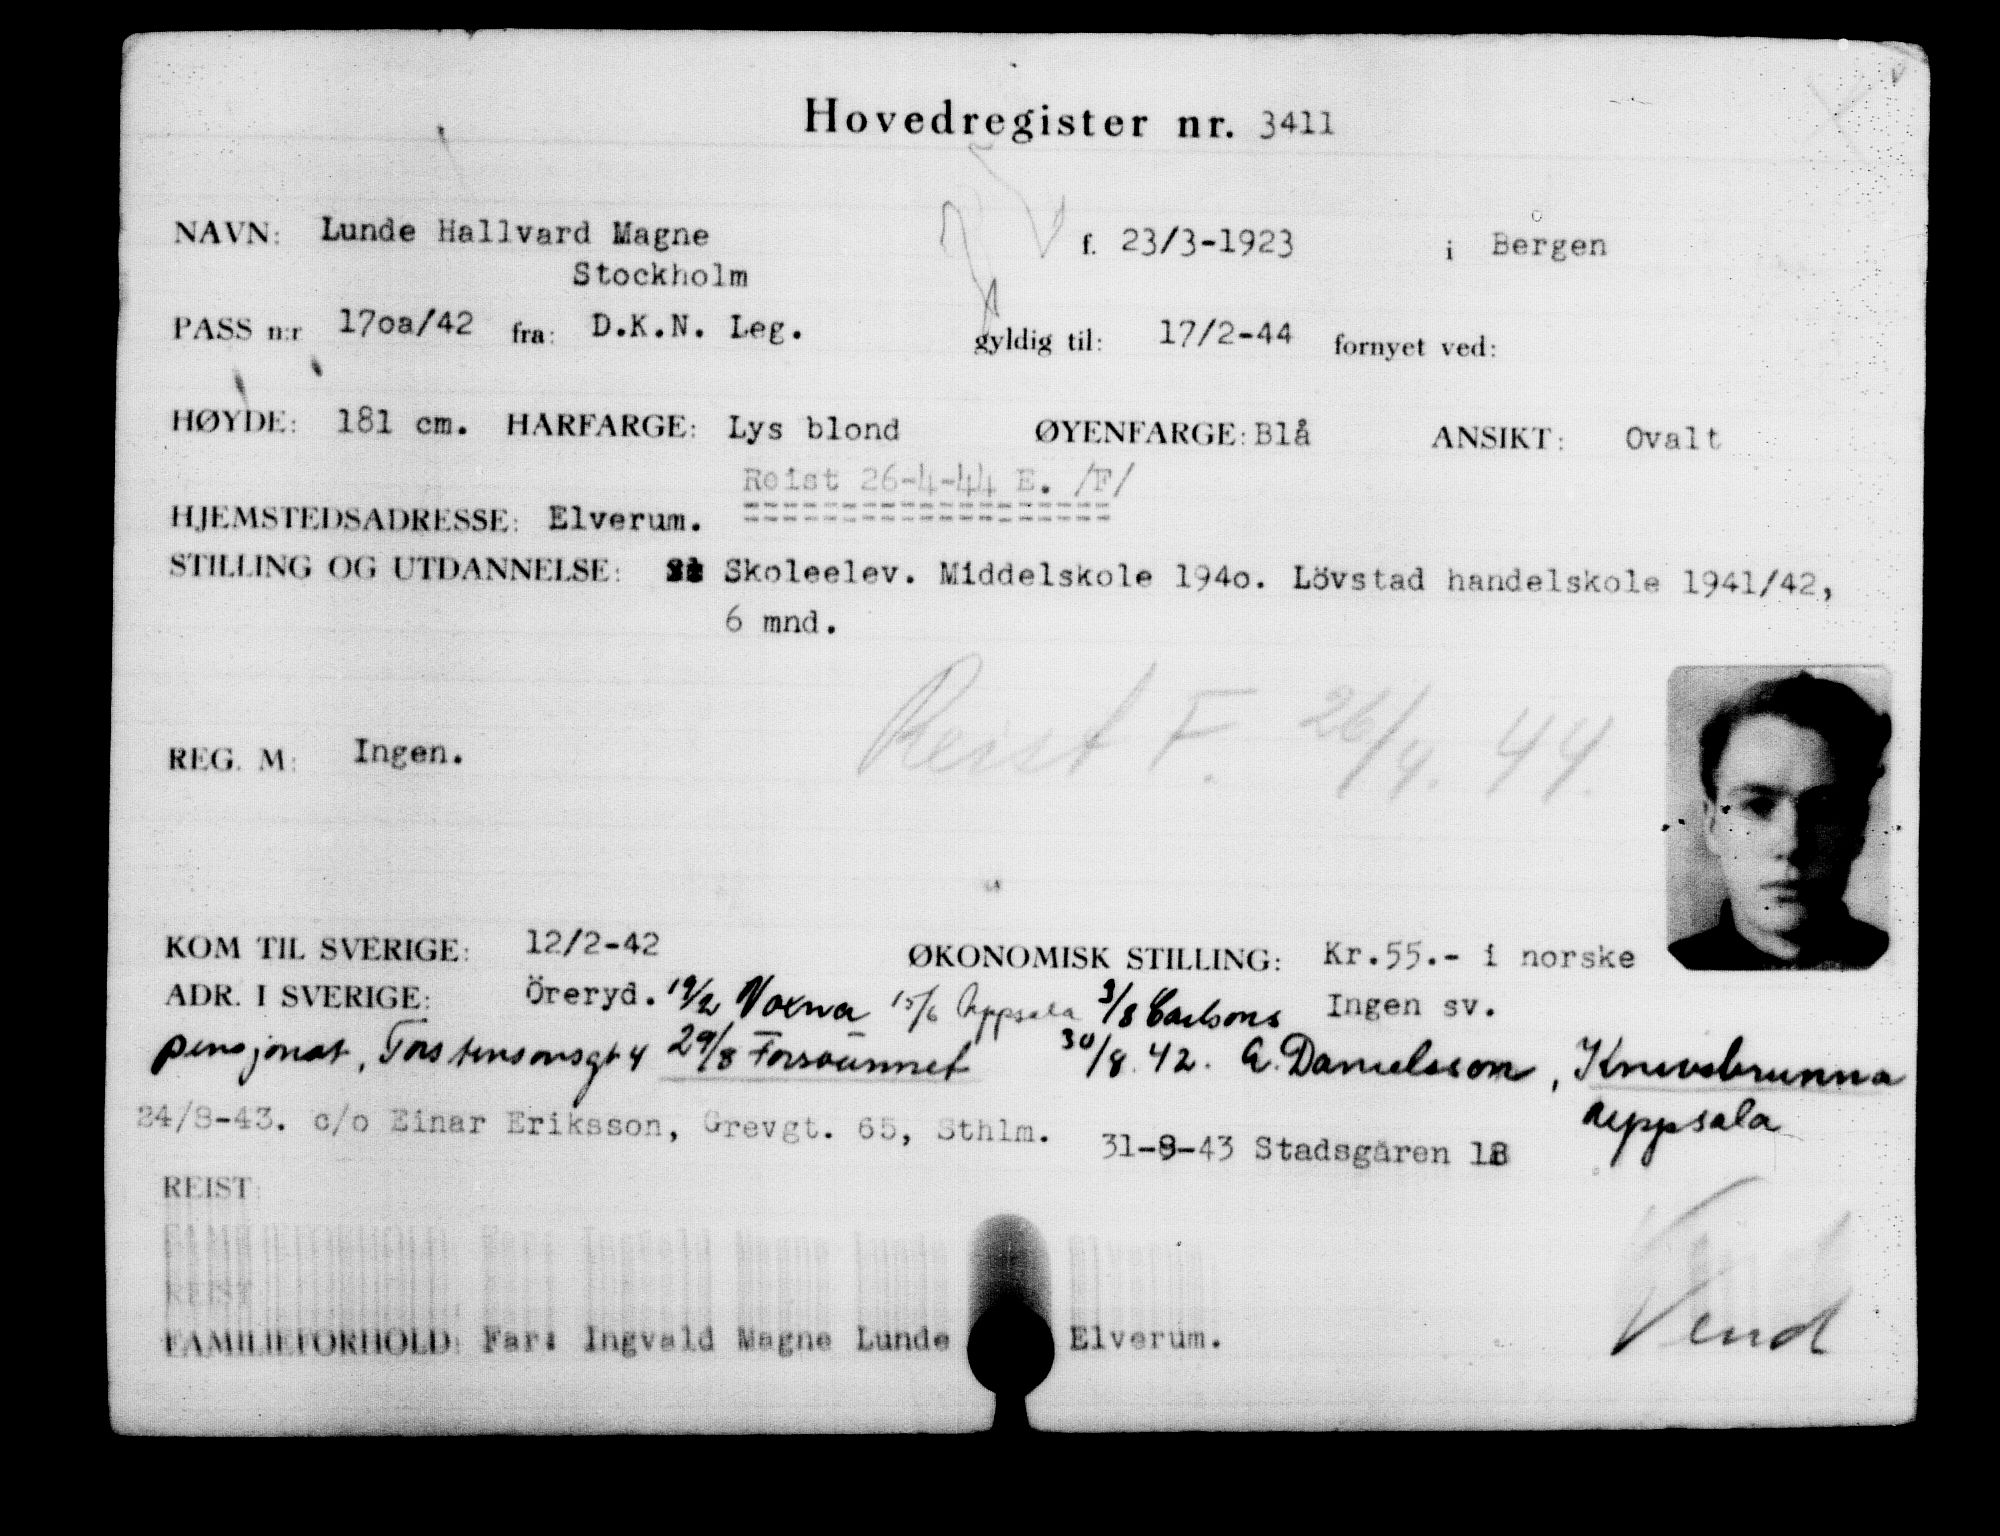 Hovedregister nr. 3411
NAVN: Lunde Hallvard Magne f. 23/3-1923 i Bergen
Stockholm
PASS n:r 17oa/42 fra: D.K.N. Leg. gyldig til: 17/2-44 fornyet ved:
HØYDE: 181 cm. HÅRFARGE: Lys blond ØYENFARGE: Blå ANSIKT: Ovalt
Reist 26-4-44 E. /F/
HJEMSTEDSADRESSE: Elverum.
STILLING OG UTDANNELSE: Skoleelev. Middelskole 194o. Lövstad handelskole 1941/42,
6 mnd.
Reist F. 26/4. 44.
REG. M: Ingen.
KOM TIL SVERIGE: 12/2-42 ØKONOMISK STILLING: Kr.55.- i norske
ADR. I SVERIGE: Öreryd. 19/2 Voxna 15/6 Uppsala 3/8 Carlsons Ingen sv.
pensjonat, Torstensonsgt 4 29/8 30/8. 42. G. Danielsson, Knivsbrunna
Uppsala
24/8-43. c/o Einar Eriksson, Grevgt. 65, Sthlm. 31-8-43 Stadsgären
REIST:
FAMILIEFORHOLD: Far: Ingvald Magne Lunde Elverum.
Vend